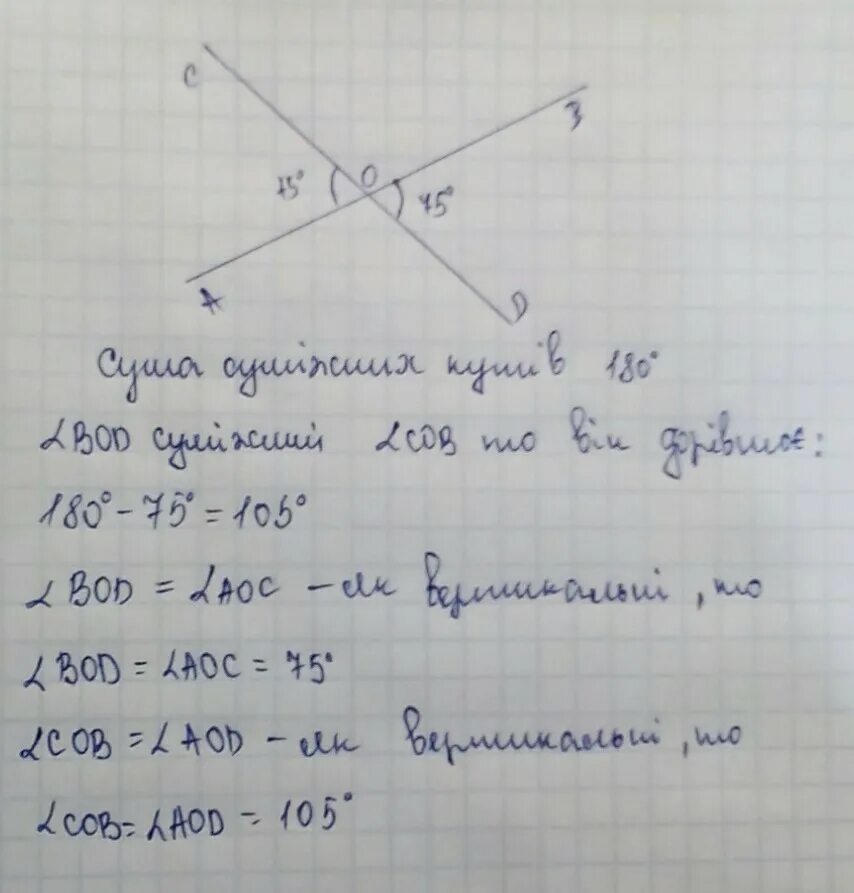 C
B
O
75°
75°
A
D
Сума суміжних кутів 180°
∠BOD суміжний ∠COB то він дорівнює:
180° - 75° = 105°
∠BOD = ∠AOC - як вертикальні, то
∠BOD = ∠AOC = 75°
∠COB = ∠AOD - як вертикальні, то
∠COB = ∠AOD = 105°